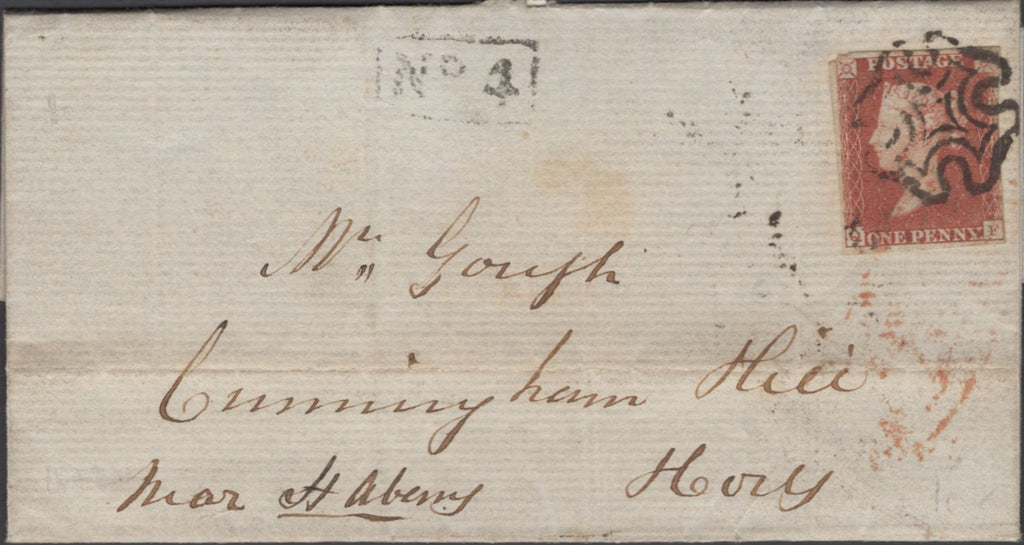 No 4
POSTAGE
ONE PENNY
Q F
Mr Gough
Cunningham Hill
Near St Albans Herts